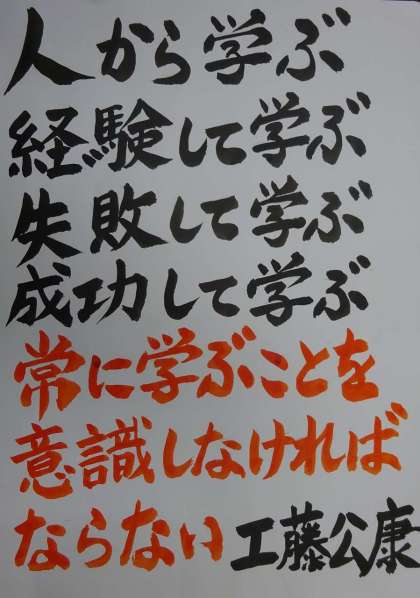 人から学ぶ
経験して学ぶ
失敗して学ぶ
成功して学ぶ
常に学ぶことを
意識しなければ
ならない 工藤公康